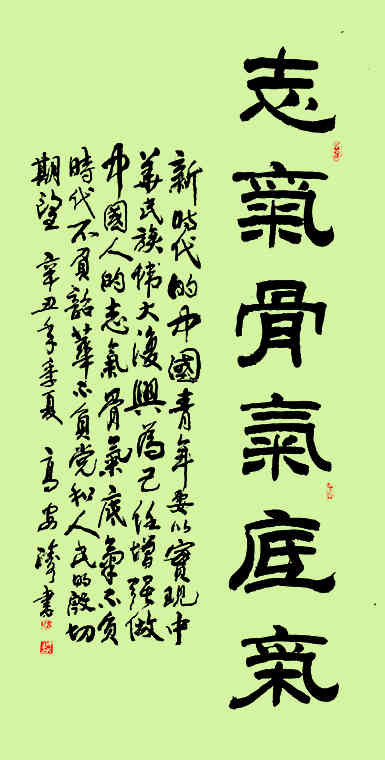 志氣骨氣底氣
新時代的中國青年要以實現中
華民族偉大復興為己任增强做
中國人的志氣骨氣底氣不負
時代不負韶華不負党和人民的殷切
期望 辛丑年季夏 高安書